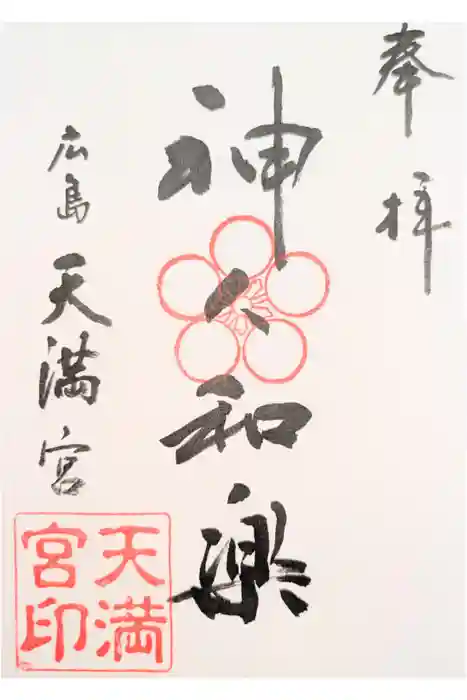 奉拝
神人和楽
広島 天満宮
天満宮印